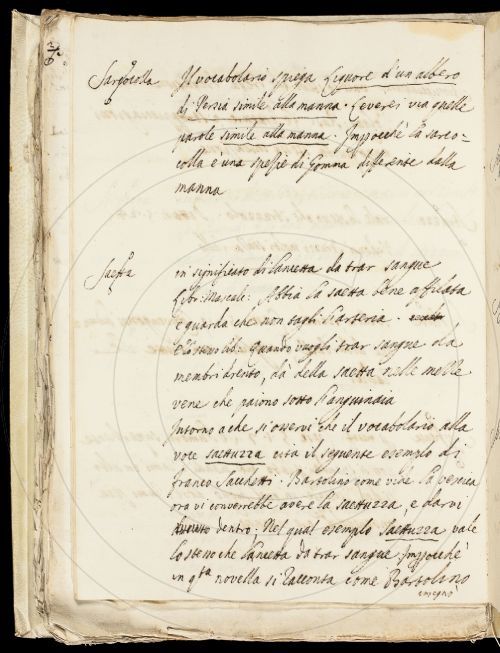 Sarcocolla Il vocabolario spiega Liquore d'un albero
di Persia simile alla manna. Leverei via quelle
parole simile alla manna. Imperocchè la sarco=
colla è una spezie di Gomma differente dalla
manna
Saetta in significato di Lancetta da trar sangue
Libr: Mascalc: Abbia la saetta bene affilata
e guarda che non tagli l'arteria.
E lo stesso lib: Quando vuogli trar sangue da
membri drento, dà della saetta nelle
vene che paiono sotto l'anguinaia
Intorno a che si osservi che il vocabolario alla
voce saettuzza cita il seguente esempio di
franco Sacchetti: Bartolino come vide la vescica
ora vi converrebbe avere la saettuzza, e darvi
dentro: Nel qual esempio saettuzza vale
lo stesso che Lancetta da trar sangue Imperocchè
in qta novella si racconta come Bartolino
insegnò